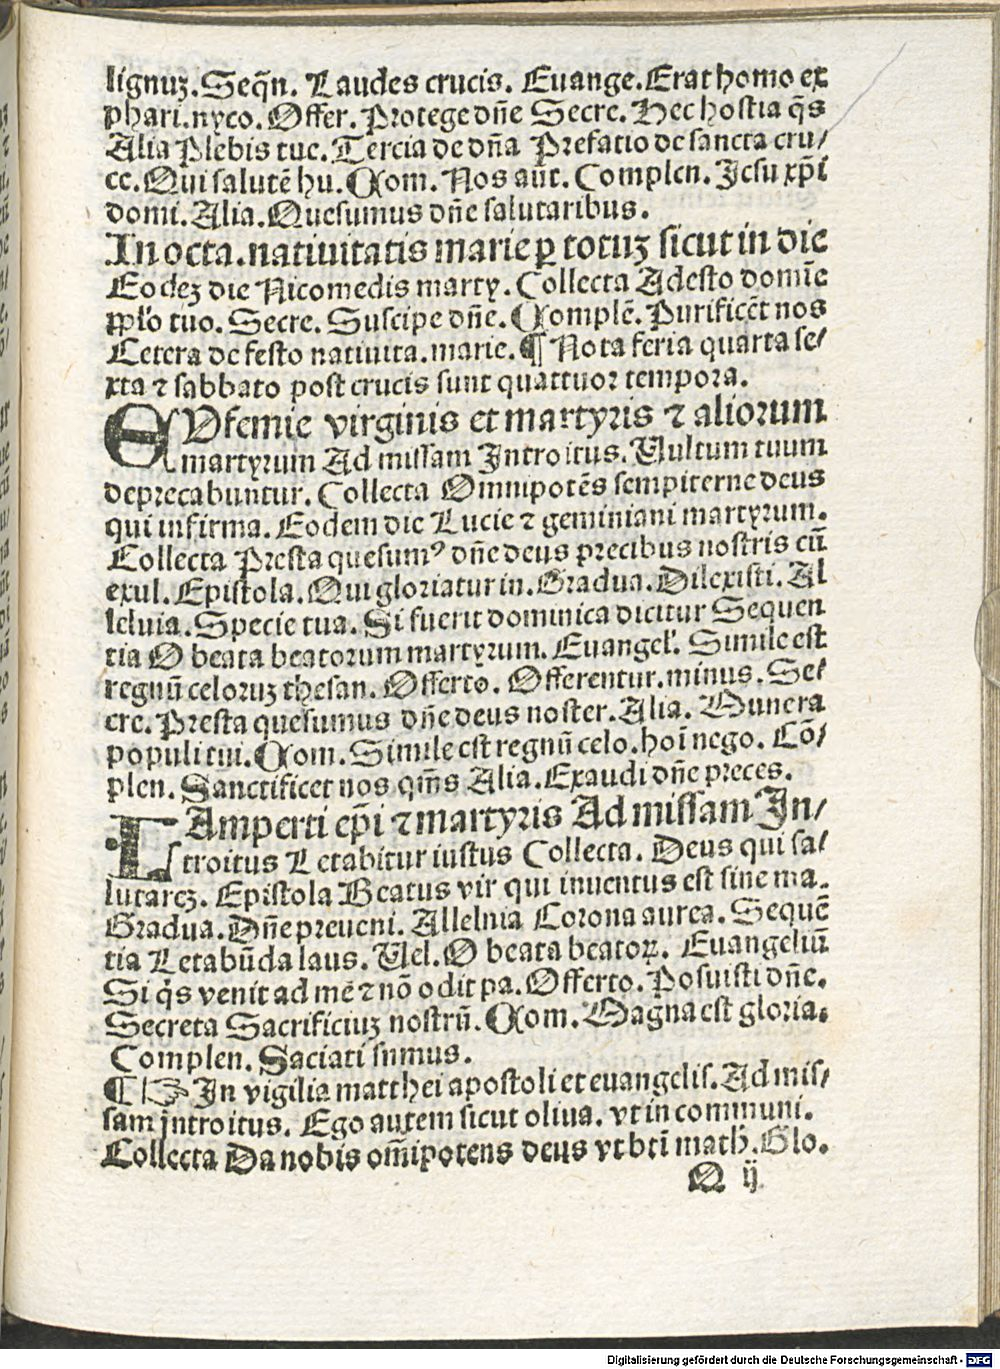 lignuꝫ. Seq̄n. Laudes crucis. Euange. Erat homo ex
phari. nyco. Offer. Protege dn̄e Secre. Hec hostia q̄s
Alia Plebis tue. Tercia de dn̄a Prefatio de sancta cru/
ce. Qui salutē hu. Com. Nos aūt. Complen. Jesu xp̄i
domi. Alia. Quesumus dn̄e salutaribus.
In octa. natiuitatis marie ꝑ totuꝫ sicut in die
Eodeꝫ die Nicomedis marty. Collecta Adesto domīe
ppło tuo. Secre. Suscipe dn̄e. Complē. Purificēt nos
Cetera de festo natiuita. marie. ¶ Nota feria quarta se/
xta ⁊ sabbato post crucis sunt quattuor tempora.
EUfemie virginis et martyris ⁊ aliorum
martyrum Ad missam Introitus. Vultum tuum
deprecabuntur. Collecta Omnipotēs sempiterne deus
qui infirma. Eodem die Lucie ⁊ geminiani martyrum.
Collecta Presta quesumꝰ dn̄e deus precibus nostris cū
exul. Epistola. Qui gloriatur in. Gradua. Dilexisti. Al
leluia. Specie tua. Si fuerit dominica dicitur Sequen
tia O beata beatorum martyrum. Euangeł. Simile est
regnū celoruꝫ thesan. Offerto. Offerentur. minus. Se/
cre. Presta quesumus dn̄e deus noster. Alia. Munera
populi tui. Com. Simile est regnū celo. hoī nego. Cō/
plen. Sanctificet nos qm̄s Alia. Exaudi dn̄e preces.
LAmperti ep̄i ⁊ martyris Ad missam In/
troitus Letabitur iustus Collecta. Deus qui sa/
lutareꝫ. Epistola Beatus vir qui inuentus est sine ma.
Gradua. Dn̄e preueni. Allelnia Corona aurea. Sequē
tia Letabūda laus. Vel. O beata beatoꝝ. Euangeliū
Si q̄s venit ad mē ⁊ nō odit pa. Offerto. Posuisti dn̄e.
Secreta Sacrificiuꝫ nostrū. Com. Magna est gloria.
Complen. Saciati sumus.
¶ ☞ In vigilia matthei apostoli et euangelis. Ad mis/
sam introitus. Ego autem sicut oliua. vt in communi.
Collecta Da nobis om̄ipotens deus vt bt̄i math̄. Glo.
Q ij
Digitalisierung gefördert durch die Deutsche Forschungsgemeinschaft - DFG